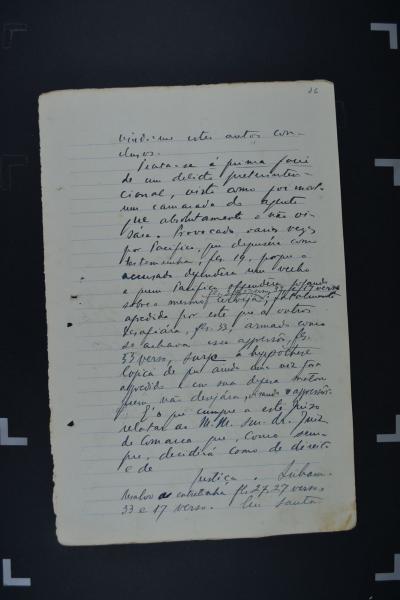 26
vindo-me estes autos con-
clusos.
Trata-se á prima facie
de um delicto preterinten-
cional, visto como foi morto
um camarada do agente
que absolutamente o não vi-
sára. Provocado varias vezes
por Pacifico, que depuzéra como
testemunha, fls. 19, porque o
accusado defendera um velho
a quem Pacifico offendêra, jogando
sobre o mesmo cerveja, fls. 17 verso
agredido por este que a outros
desafiára, fls. 33, armado como
se achava esse agressor, fls.
33 verso, surge a hypothese
logica de que ainda uma vez fora
agredido e em sua defesa matou
quem não desejára, errando o agressor.
É o que cumpre a este juizo
relatar ao M. M. snr. dr. Juiz
de Comarca que, como sem-
pre, decidirá como de direito
e de
Justiça.
Resalvo as entrelinha fls. 27, 27 verso,
33 e 17 verso. Em